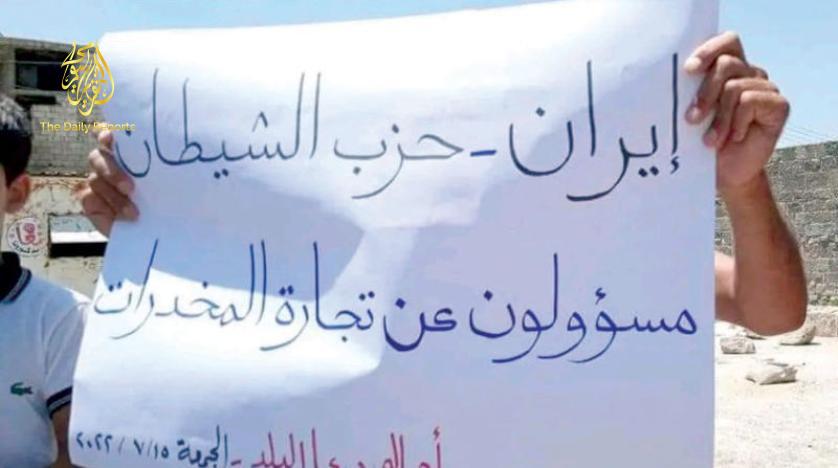 The Daily Reports
إيران - حزب الشيطان
مسؤولون عن تجارة المخدرات
البلد - الجمعة ٢٠٢٢/٧/١٥